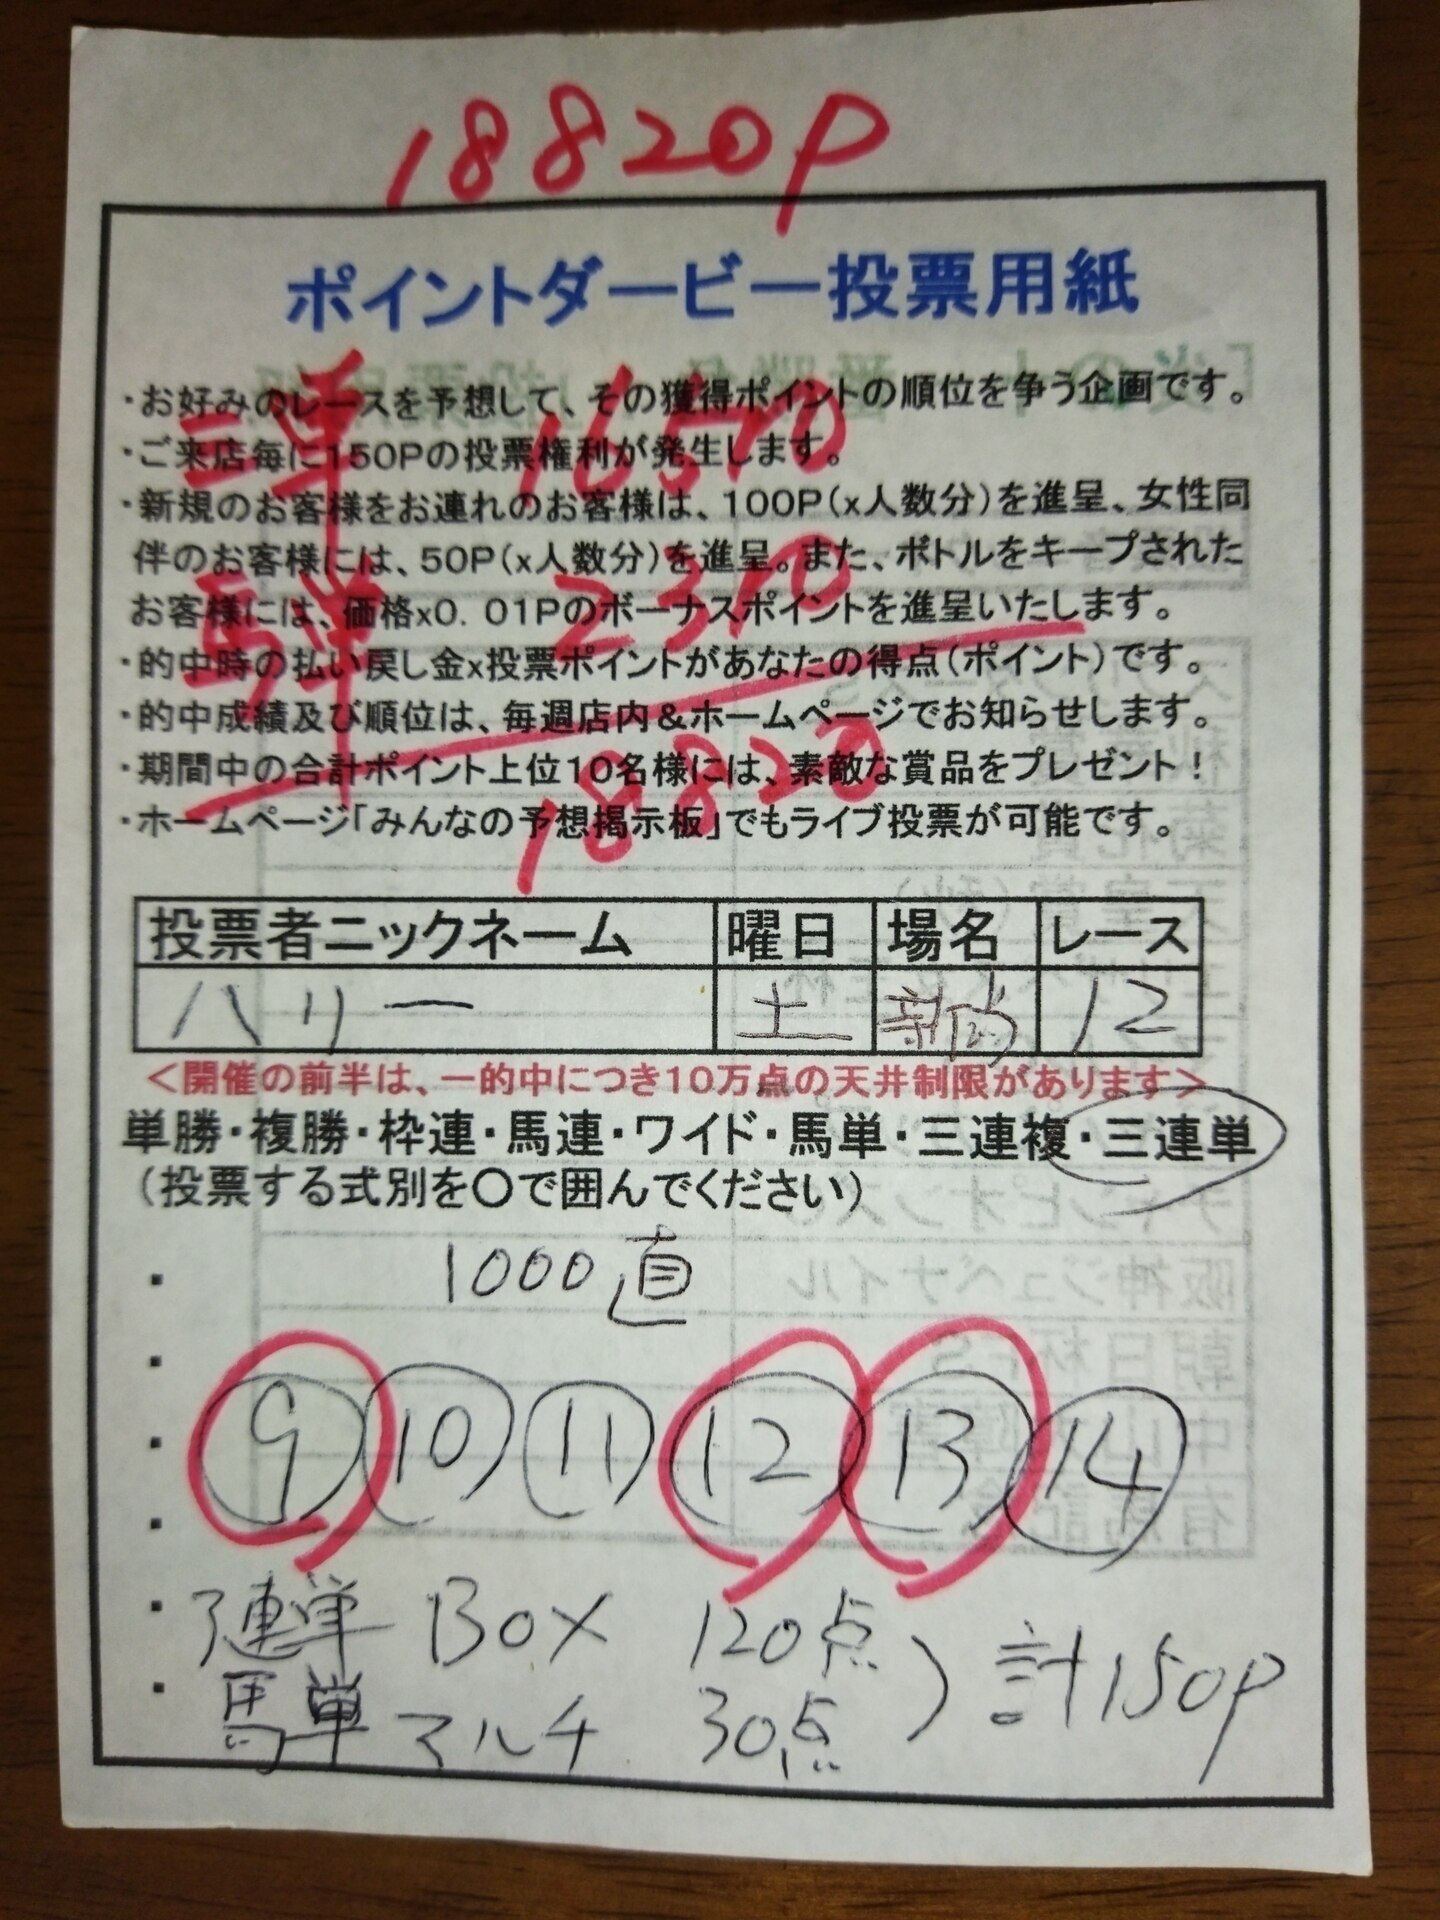 18820P
ポイントダービー投票用紙
・お好みのレースを予想して、その獲得ポイントの順位を争う企画です。
・ご来店毎に150Pの投票権利が発生します。
・新規のお客様をお連れのお客様は、100P(x人数分)を進呈、女性同
伴のお客様には、50P(x人数分)を進呈。また、ボトルをキープされた
お客様には、価格x0.01Pのボーナスポイントを進呈いたします。
・的中時の払い戻し金x投票ポイントがあなたの得点(ポイント)です。
・的中成績及び順位は、毎週店内&ホームページでお知らせします。
・期間中の合計ポイント上位10名様には、素敵な賞品をプレゼント!
・ホームページ「みんなの予想掲示板」でもライブ投票が可能です。
三単 16510
馬単 2310
18820
投票者ニックネーム 曜日 場名 レース
ハリー 土 新潟 12
<開催の前半は、一的中につき10万点の天井制限があります>
単勝・複勝・枠連・馬連・ワイド・馬単・三連複・三連単
(投票する式別を〇で囲んでください)
1000直
⑨ ⑩ ⑪ ⑫ ⑬ ⑭
3連単 BOX 120点
馬単 マルチ 30点
計150P